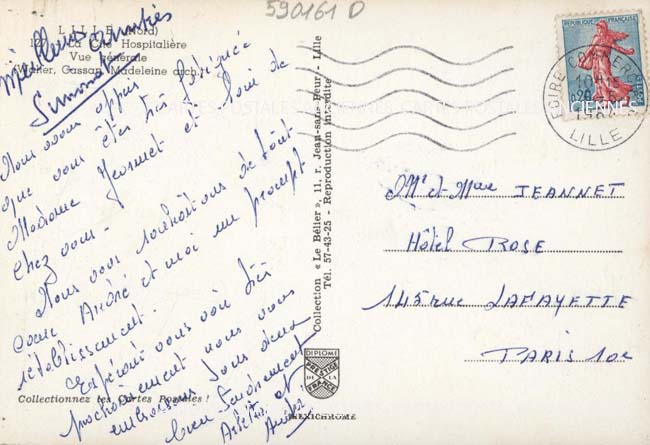 590161 D
LILLE (Nord)
La Cité Hospitalière
Vue générale
(Walter, Cassan, Madeleine arch.)
Meilleures Amitiés
Simone
Nous avons appris
que vous êtes très fatiguée
Madame Jeannet et loin de
chez vous.
Nous vous souhaitons de tout
cœur André et moi un prompt
rétablissement.
Espérons vous voir très
prochainement nous vous
embrassons tous deux
bien tendrement
et
André
Collectionnez les Cartes Postales !
Collection « Le Bélier », 11, r. Jean-sans-Peur - Lille
Tél. 57-43-25 - Reproduction interdite
DIPLOME
PRESTIGE
DE LA
FRANCE
MEXICHROME
FRANÇAISE
LILLE
Mr et Mme JEANNET
Hôtel ROSE
145 rue LAFAYETTE
PARIS 10e